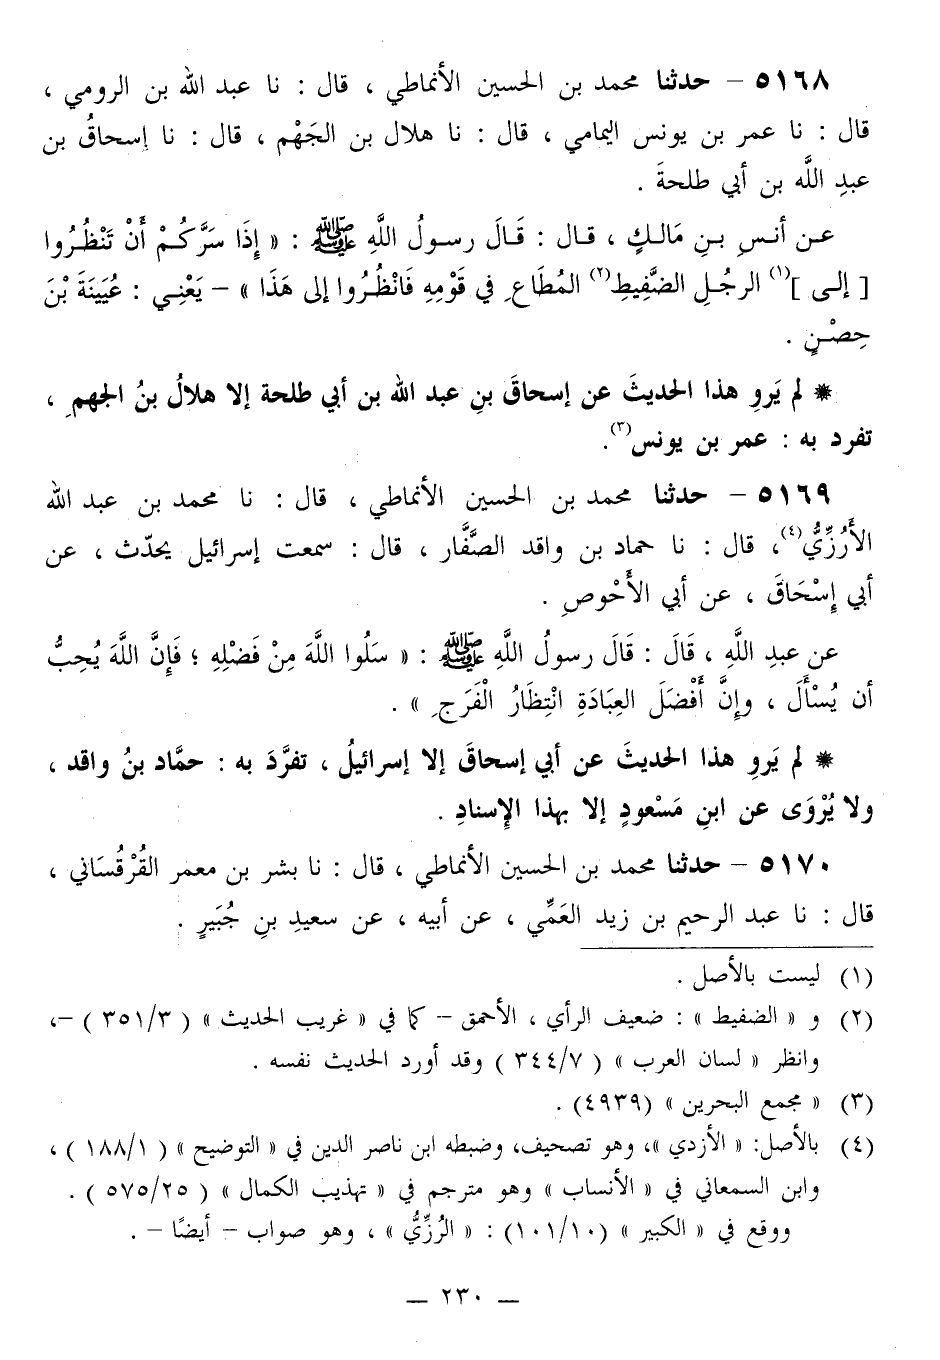 ٥١٦٨ – حدثنا محمد بن الحسين الأنماطي ، قال : نا عبد الله بن الرومي ،
قال : نا عمر بن يونس اليمامي ، قال : نا هلال بن الجَهْم ، قال : نا إسحاقُ بن
عبدِ اللَّه بن أبي طلحةَ .
عـن أنـسِ بـنِ مَالـكٍ ، قـال : قَـالَ رسـولُ اللَّهِ ﷺ : « إِذَا سَرَّكُـمْ أَنْ تَنْظُـرُوا
[ إلـى ](١) الرجُـلِ الضَّفِيـطِ(٢) المُطَاعِ فِي قَوْمِهِ فَانْظُـرُوا إلى هَذَا » – يَعْنِـي : عُيَيْنَةَ بْنَ
حِصْـنٍ .
* لم يَروِ هذا الحديثَ عن إسحاقَ بنِ عبد الله بن أبي طلحة إلا هلالُ بنُ الجهمِ ،
تفرد به : عمر بن يونس(٣).
٥١٦٩ – حدثنا محمد بن الحسين الأنماطي ، قال : نا محمد بن عبد الله
الأَرُزِّيُّ(٤)، قال : نا حماد بن واقد الصَّفَّار ، قال : سمعت إسرائيل يحدّث ، عن
أبي إِسْحَاقَ ، عن أبي الأَحْوصِ .
عن عبدِ اللَّهِ ، قَالَ : قَالَ رسولُ اللَّهِ ﷺ : « سَلُوا اللَّهَ مِنْ فَضْلِهِ ؛ فَإِنَّ اللَّهَ يُحِبُّ
أن يُسْأَلَ ، وإِنَّ أَفْضَلَ العِبَادَةِ انْتِظَارُ الْفَرَجِ » .
* لم يَروِ هذا الحديثَ عن أبي إسحاقَ إلا إسرائيلُ ، تفرَّدَ به : حمَّاد بنُ واقد ،
ولا يُرْوَى عن ابنِ مَسْعودٍ إلا بهذا الإسنادِ .
٥١٧٠ – حدثنا محمد بن الحسين الأنماطي ، قال : نا بشر بن معمر القُرْقُسَاني ،
قال : نا عبد الرحيم بن زيد العَمِّي ، عن أبيه ، عن سعيدِ بنِ جُبَيرٍ .
(١) ليست بالأصل .
(٢) و « الضفيط » : ضعيف الرأي ، الأحمق – كما في « غريب الحديث » ( ٣٥١/٣ ) –،
وانظر « لسان العرب » ( ٣٤٤/٧ ) وقد أورد الحديث نفسه .
(٣) « مجمع البحرين » (٤٩٣٩) .
(٤) بالأصل: « الأزدي »، وهو تصحيف، وضبطه ابن ناصر الدين في « التوضيح » ( ١٨٨/١ ) ،
وابن السمعاني في « الأنساب » وهو مترجم في « تهذيب الكمال » ( ٥٧٥/٢٥ ) .
ووقع في « الكبير » (١٠١/١٠) : « الرُزِّيُّ » ، وهو صواب – أيضًا – .
— ٢٣٠ —